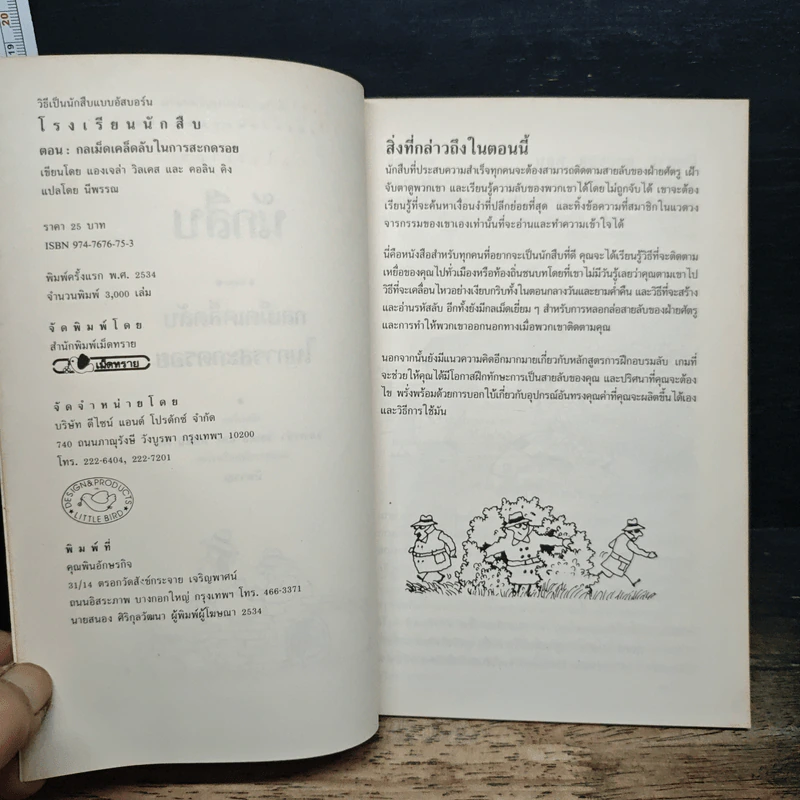 19
20
วิธีเป็นนักสืบแบบอัสบอร์น
โรงเรียนนักสืบ
ตอน : กลเม็ดเคล็ดลับในการสะกดรอย
เขียนโดย แองเจล่า วิลเคส และ คอลิน คิง
แปลโดย นีพรรณ
ราคา 25 บาท
ISBN 974-7676-75-3
พิมพ์ครั้งแรก พ.ศ. 2534
จำนวนพิมพ์ 3,000 เล่ม
จัดพิมพ์โดย
สำนักพิมพ์เม็ดทราย
เม็ดทราย
จัดจำหน่ายโดย
บริษัท ดีไซน์ แอนด์ โปรดักซ์ จำกัด
740 ถนนภาณุรังษี วังบูรพา กรุงเทพฯ 10200
โทร. 222-6404, 222-7201
DESIGN&PRODUCTS
LITTLE BIRD
พิมพ์ที่
คุณพินอักษรกิจ
31/14 ตรอกวัดสังข์กระจาย เจริญพาศน์
ถนนอิสระภาพ บางกอกใหญ่ กรุงเทพฯ โทร. 466-3371
นายสนอง ศิริกุลวัฒนา ผู้พิมพ์ผู้โฆษณา 2534
สิ่งที่กล่าวถึงในตอนนี้
นักสืบที่ประสบความสำเร็จทุกคนจะต้องสามารถติดตามสายลับของฝ่ายศัตรู เฝ้า
จับตาดูพวกเขา และเรียนรู้ความลับของพวกเขาได้โดยไม่ถูกจับได้ เขาจะต้อง
เรียนรู้ที่จะค้นหาเงื่อนงำที่ปลีกย่อยที่สุด และทิ้งข้อความที่สมาชิกในแวดวง
จารกรรมของเขาเองเท่านั้นที่จะอ่านและทำความเข้าใจได้
นี่คือหนังสือสำหรับทุกคนที่อยากจะเป็นนักสืบที่ดี คุณจะได้เรียนรู้วิธีที่จะติดตาม
เหยื่อของคุณไปทั่วเมืองหรือท้องถิ่นชนบทโดยที่เขาไม่มีวันรู้เลยว่าคุณตามเขาไป
วิธีที่จะเคลื่อนไหวอย่างเงียบกริบทั้งในตอนกลางวันและยามค่ำคืน และวิธีที่จะสร้าง
และอ่านรหัสลับ อีกทั้งยังมีกลเม็ดเยี่ยม ๆ สำหรับการหลอกล่อสายลับของฝ่ายศัตรู
และการทำให้พวกเขาออกนอกทางเมื่อพวกเขาติดตามคุณ
นอกจากนั้นยังมีแนวความคิดอีกมากมายเกี่ยวกับหลักสูตรการฝึกอบรมลับ เกมที่
จะช่วยให้คุณได้มีโอกาสฝึกทักษะการเป็นสายลับของคุณ และปริศนาที่คุณจะต้อง
ไข พรั่งพร้อมด้วยการบอกใบ้เกี่ยวกับอุปกรณ์อันทรงคุณค่าที่คุณจะผลิตขึ้นได้เอง
และวิธีการใช้มัน